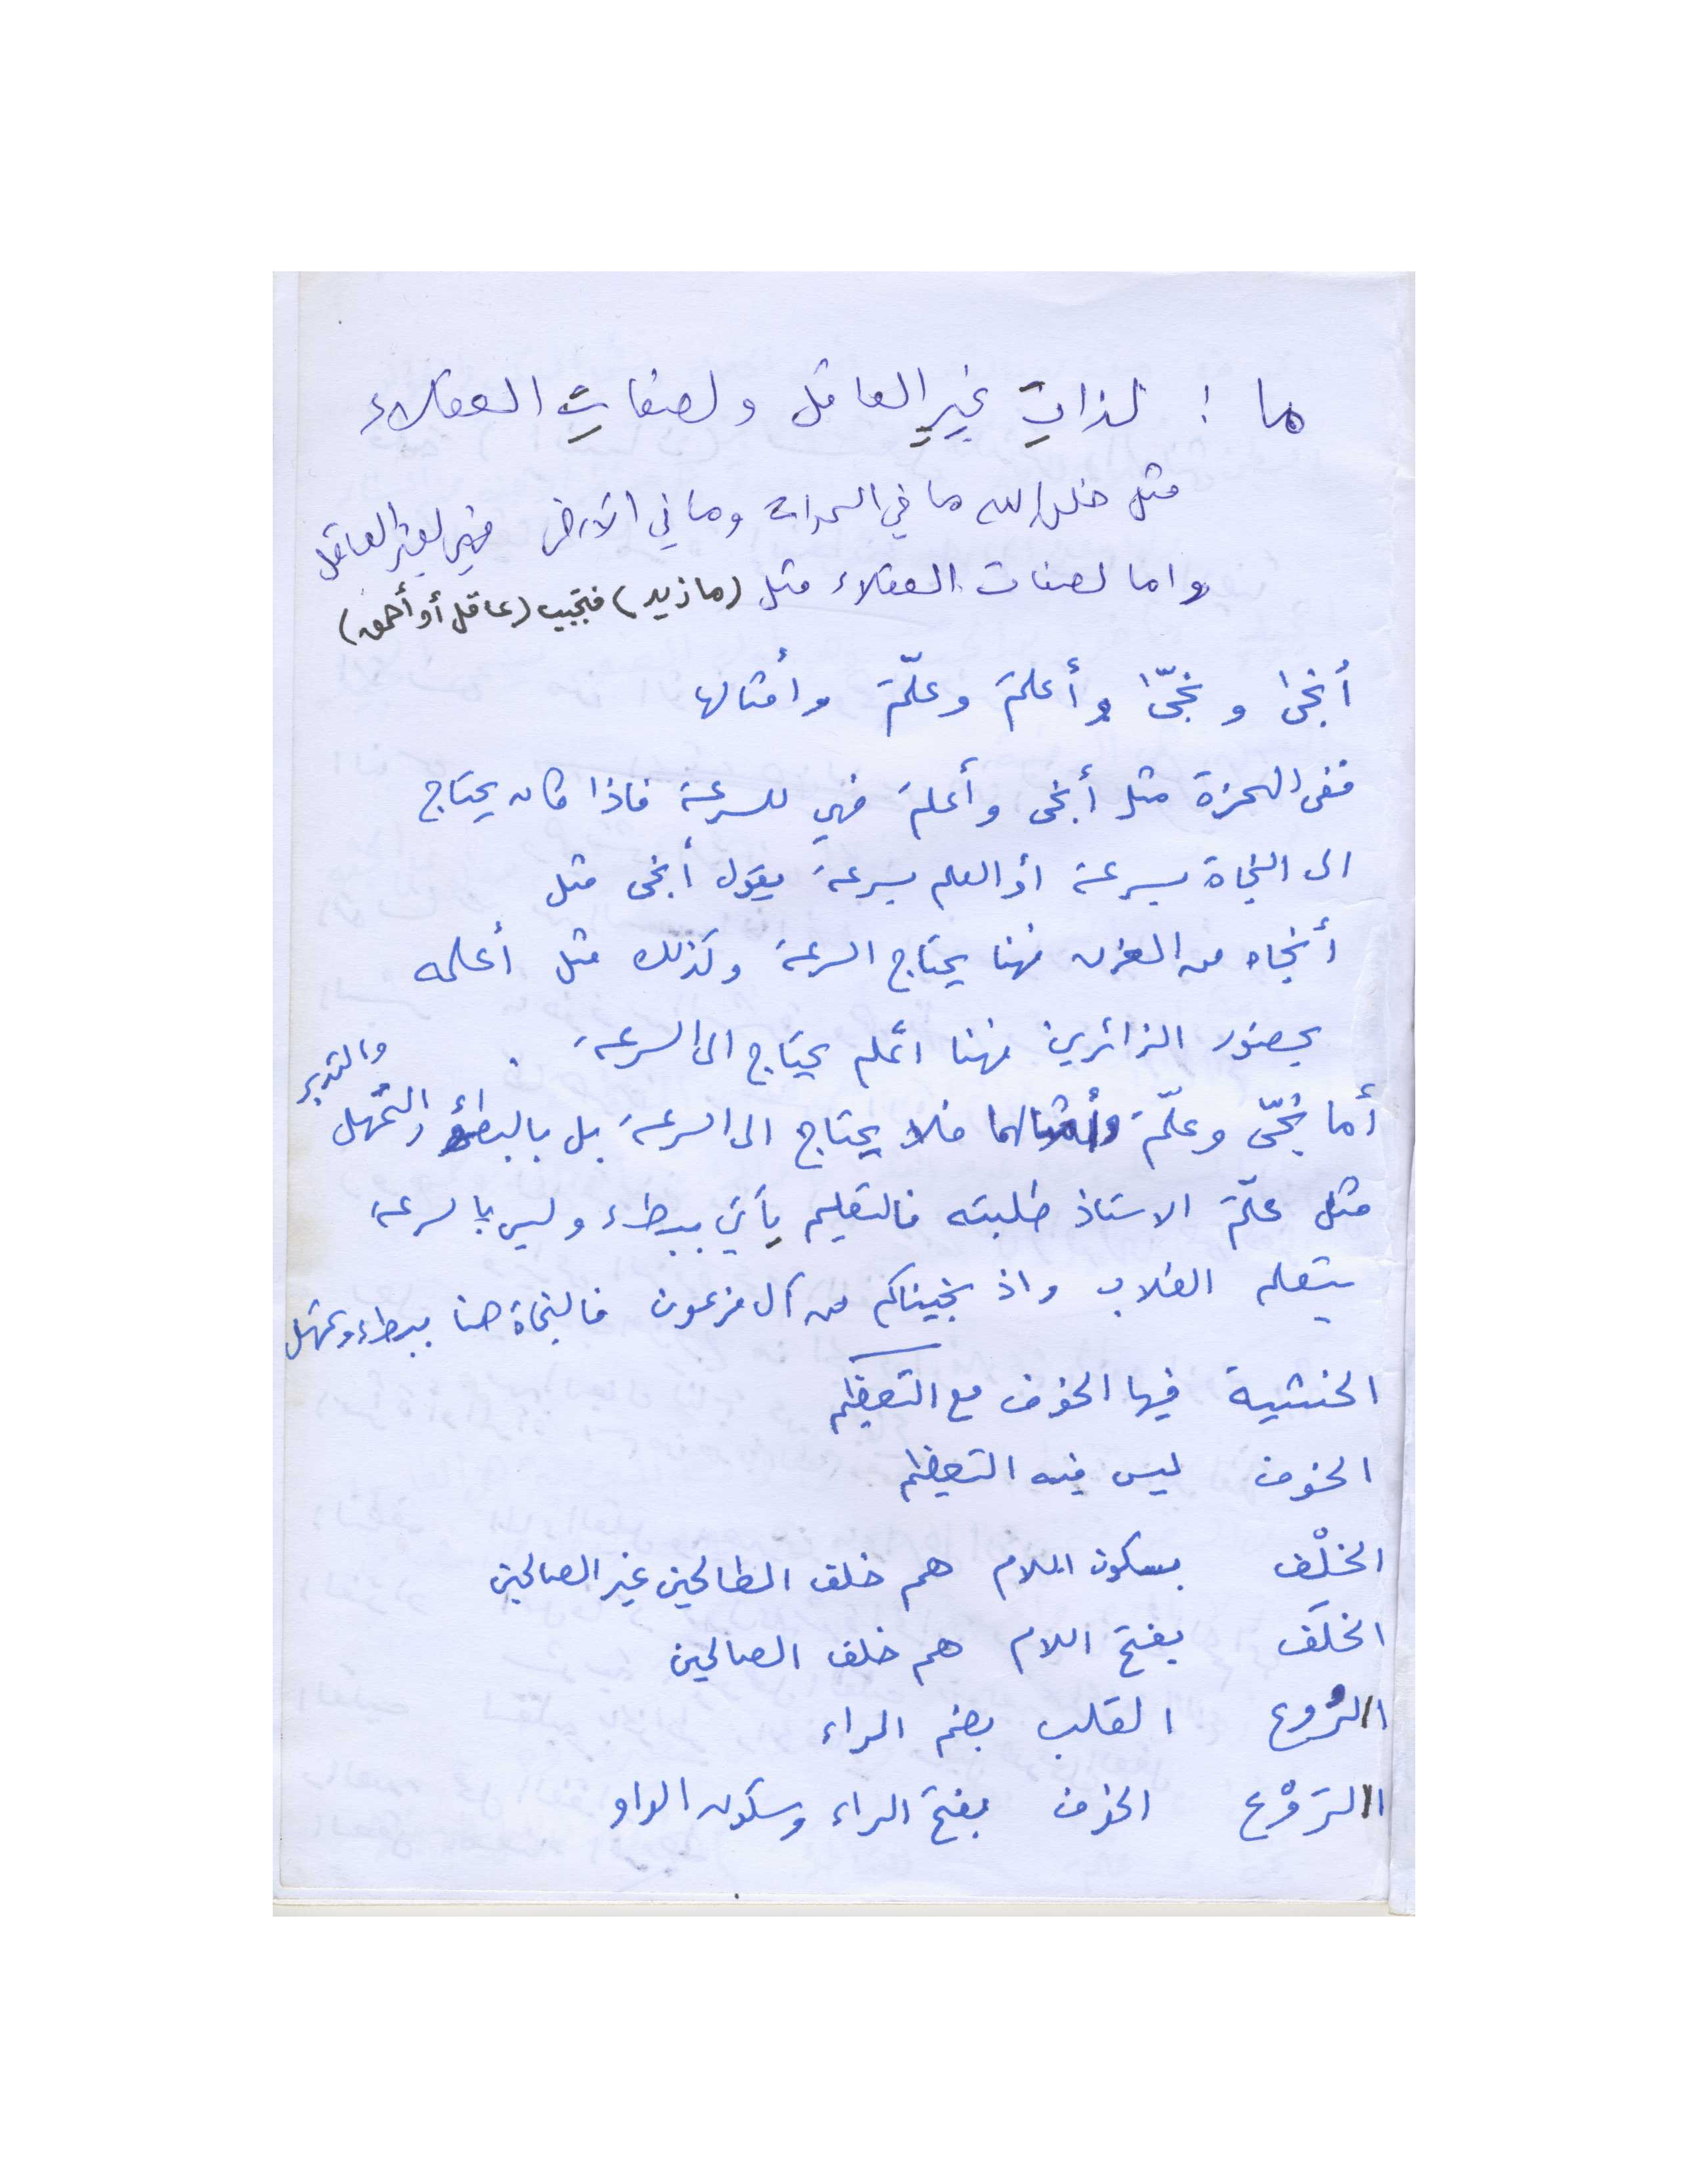 ما : لذاتِ غيرِ العاقل ولصفاتِ العقلاء
مثل خلق الله ما في السموات وما في الأرض فهي لغير العاقل
واما لصفات العقلاء مثل (ما زيد) فتجيب (عاقل أو أحمق)
أنجىٰ و نجّىٰ وأعلمَ وعلّمَ وأمثالها
ففي الهمزة مثل أنجى وأعلمَ فهي للسرعة فاذا كان يحتاج
الى النجاة بسرعة أو العلم بسرعة يقول أنجى مثل
أنجاه من الغرق فهنا يحتاج السرعة وكذلك مثل أعلمه
بحضور الزائرين فهنا اعلم يحتاج الى السرعة .
أما نجّى وعلّمَ وأمثالهما فلا يحتاج الى السرعة بل بالبطئ والتمهل والتدبر
مثل علّمَ الاستاذ طلبته فالتعليم يأتي ببطء وليس بالسرعة
يتعلم الطلاب واذ نجيناكم من آل فرعون فالنجاة هنا ببطء وتمهل
الخشية فيها الخوف مع التعظيم
الخوف ليس فيه التعظيم
الخلْف بسكون اللام هم خلف الطالحين غير الصالحين
الخلَف بفتح اللام هم خلف الصالحين
الرُوع القلب بضم الراء
الرَوْع الخوف بفتح الراء وسكون الواو